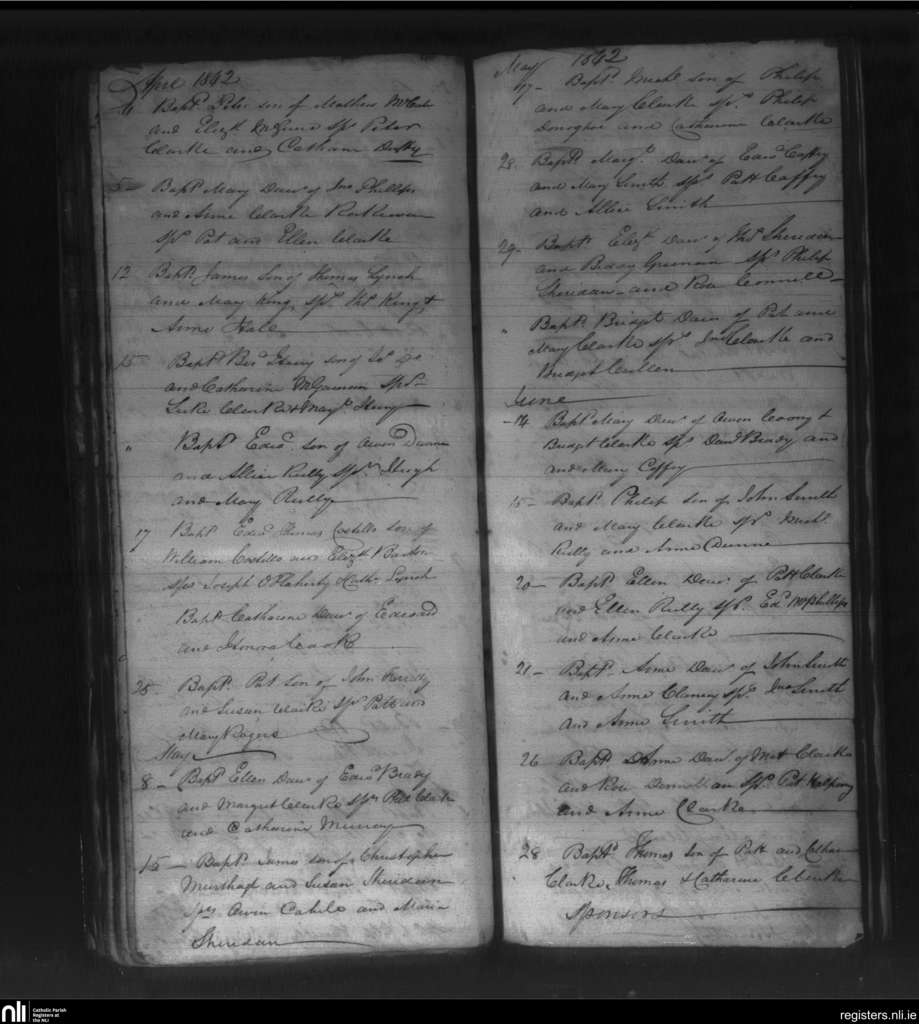 April 1842
Bapt. Peter son of Mathew
and Elizh Sprs Peter
Clarke and Catharn Duffy
5 Bapt. Mary Dawr of Jno Phillips
and Anne Clarke
Sprs Pat and Ellen Clarke
12 Bapt. James Son of Thomas Lynch
and Mary King Sprs Thos King &
Anne Hale
15 Bapt. Henry son of
and Catharine McGauran Sprs
Luke Clarke & Margt Henry
" Bapt. Edwd son of Owen Dunne
and Allice Reilly Sprs Hugh
and Mary Reilly
17 Bapt. Edwd Thomas Costillo son of
William Costillo and Elizth Barton
Sprs Joseph O'Flaherty Cathe Lynch
Bapt. Catharine Dawr of Edward
and Honora Cooke
25 Bapt. Pat Son of John
and Susan Clarke Sprs Patt and
Mary Rogers
May
8 - Bapt. Ellen Dawr of Edwd Brady
and Margret Clarke Sprs Patt Clarke
and Catharine Murray
15 - Bapt. James son of Christopher
and Susan Sheridan
Sprs Owen Cahile and Maria
Sheridan
May 1842
17 - Bapt. Michl son of Philip
and Mary Clarke Sprs Philip
Donoghoe and Catharine Clarke
28 Bapt. Margt Dawr of Edwd Caffry
and Mary Smith Sprs Patt Caffry
and Allice Smith
29 - Bapt. Elizh Dawr of Thos Sheridan
and Biddy Sprs Philip
Sheridan and Rose Connell
" Bapt. Bridget Dawr of Pat and
Mary Clarke Sprs Jno Clarke and
Bridget Cullen
June
14 Bapt. Mary Dawr of Owen &
Bridgt Clarke Sprs Danl Brady and
and Mary Coffey
15 - Bapt. Philip Son of John Smith
and Mary Clarke Sprs Michl
Reilly and Anne Dunne
20 - Bapt. Ellen Dawr of Patt Clarke
and Ellen Reilly Sprs Edd McPhillips
and Anne Clarke
21 - Bapt. Anne Dawr of John Smith
and Anne Clancy Sprs Jno Smith
and Anne Smith
26 Bapt. Anne Dawr of Mat Clarke
and Rose Sprs Pat Halpeny
and Anne Clarke
28 Bapt. Thomas Son of Patt and Cathar
Clarke, Thomas & Catharine Clarke
Sponsors
nli
Catholic Parish
Registers at
the NLI
registers.nli.ie